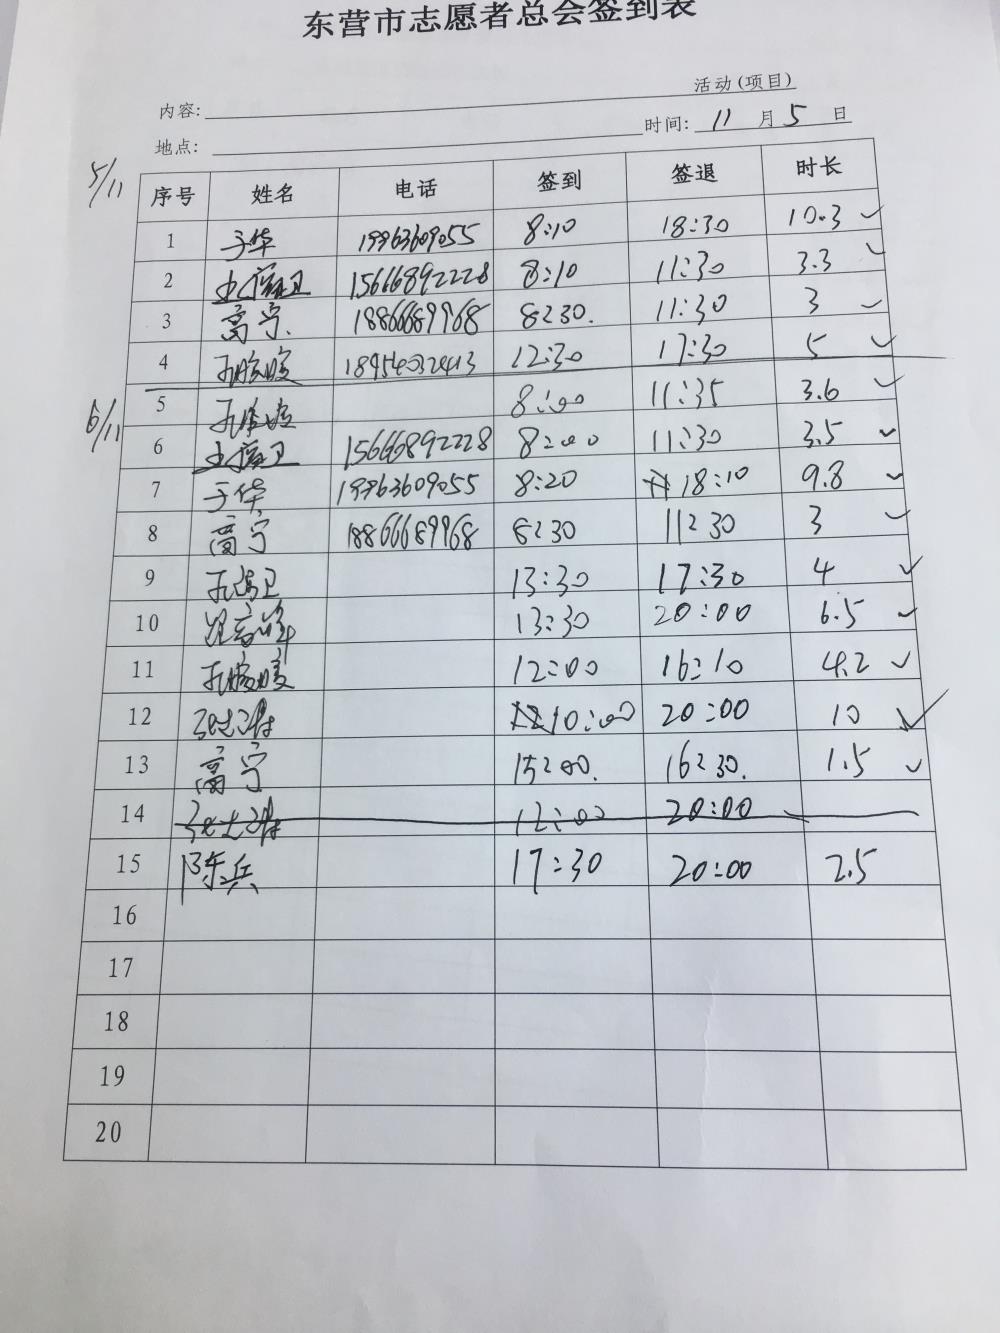 东营市志愿者总会签到表
内容: 活动(项目)
地点: 时间: 11 月 5 日
5/11
序号 姓名 电话 签到 签退 时长
1 于华 19963609055 8:10 18:30 10.3 ✓
2 15666892228 8:10 11:30 3.3 ✓
3 高宁. 18866689968 8:30. 11:30 3 ✓
4 18954032413 12:30 17:30 5 ✓
6/11
5 8:00 11:35 3.6 ✓
6 15666892228 8:00 11:30 3.5 ✓
7 于华 19963609055 8:20 18:10 9.8 ✓
8 高宁 18866689968 8:30 11:30 3 ✓
9 13:30 17:30 4 ✓
10 13:30 20:00 6.5 ✓
11 12:00 16:10 4.2 ✓
12 10:00 20:00 10 ✓
13 高宁 15:00. 16:30. 1.5 ✓
14 12:00 20:00
15 陈兵 17:30 20:00 2.5
16
17
18
19
20